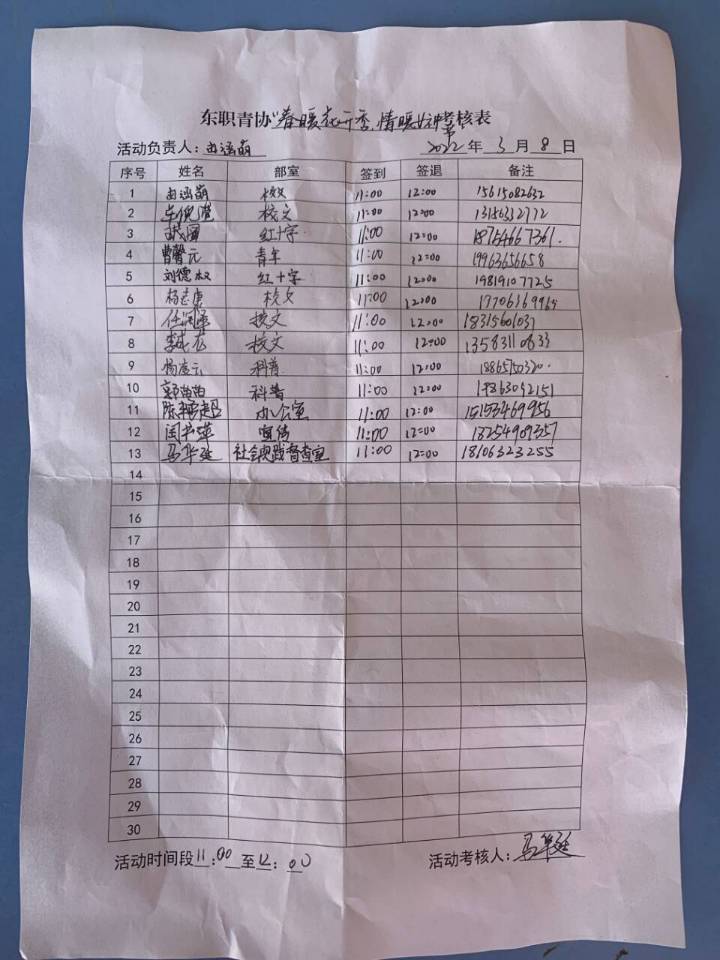 东职青协"春暖花开季,情暖女神节考核表
活动负责人: 由涵萌 2022 年 3 月 8 日
序号 姓名 部室 签到 签退 备注
1 由涵萌 校文 11:00 12:00 15615082632
2 校文 11:00 12:00 13186332772
3 红十字 11:00 12:00 18754667361.
4 曹馨元 青年 11:00 12:00 19963656658
5 刘德权 红十字 11:00 12:00 19819107725
6 杨志康 校文 11:00 12:00
7 任润泽 校文 11:00 12:00 18315601037
8 校文 11:00 12:00 13583110833
9 杨凌云 科普 11:00 12:00 18865750320.
10 郭苗苗 科普 11:00 12:00 17863092151
11 办公室 11:00 12:00 15153469956
12 宣传 11:00 12:00 18254909357
13 马华廷 社会实践督查室 11:00 12:00 18106323255
14
15
16
17
18
19
20
21
22
23
24
25
26
27
28
29
30
活动时间段 11:00 至 12:00 活动考核人: 马华廷